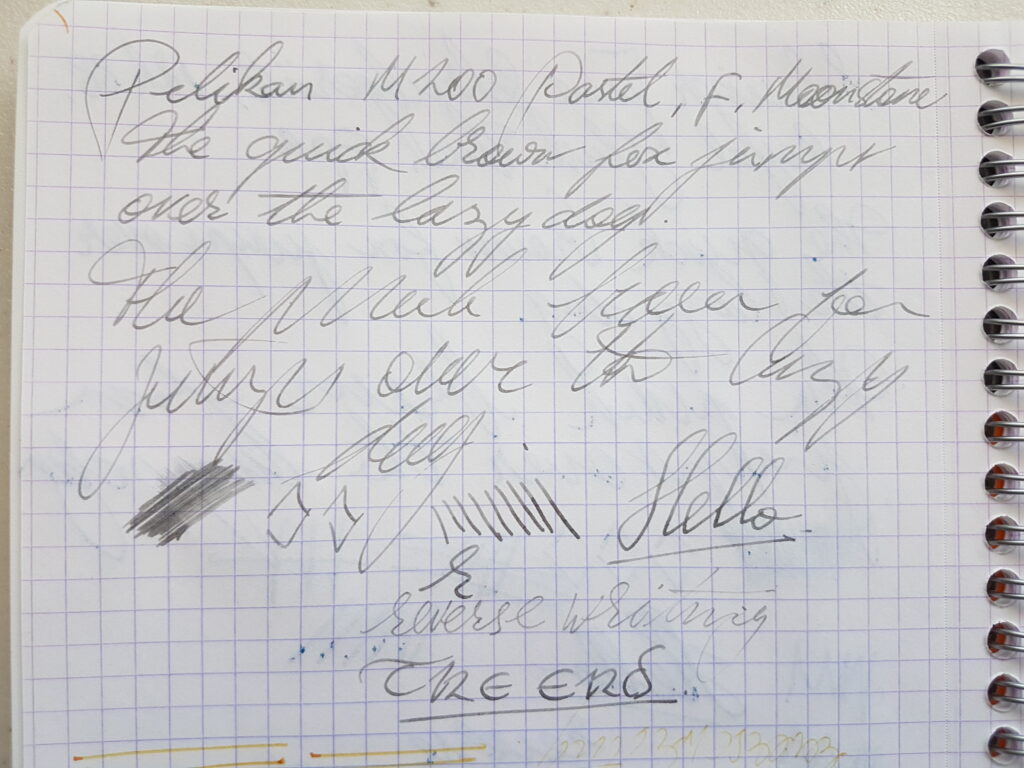 Pelikan M200 Pastel, F, Moonstone
The quick brown fox jumps
over the lazy dog.
The quick brown fox
jumps over the lazy
dog
Hello
R
reverse writing
THE END